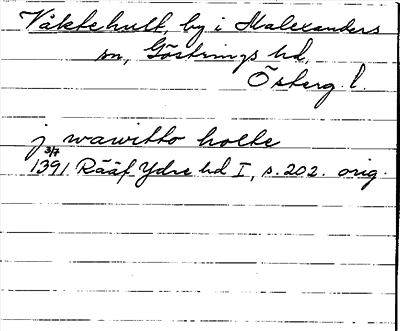 Våktehult, by i Malexanders
sn, Göstrings hd,
Österg. l.
j wawitto holte
3/7
1391 Rääf Ydre hd I, s. 202. orig.